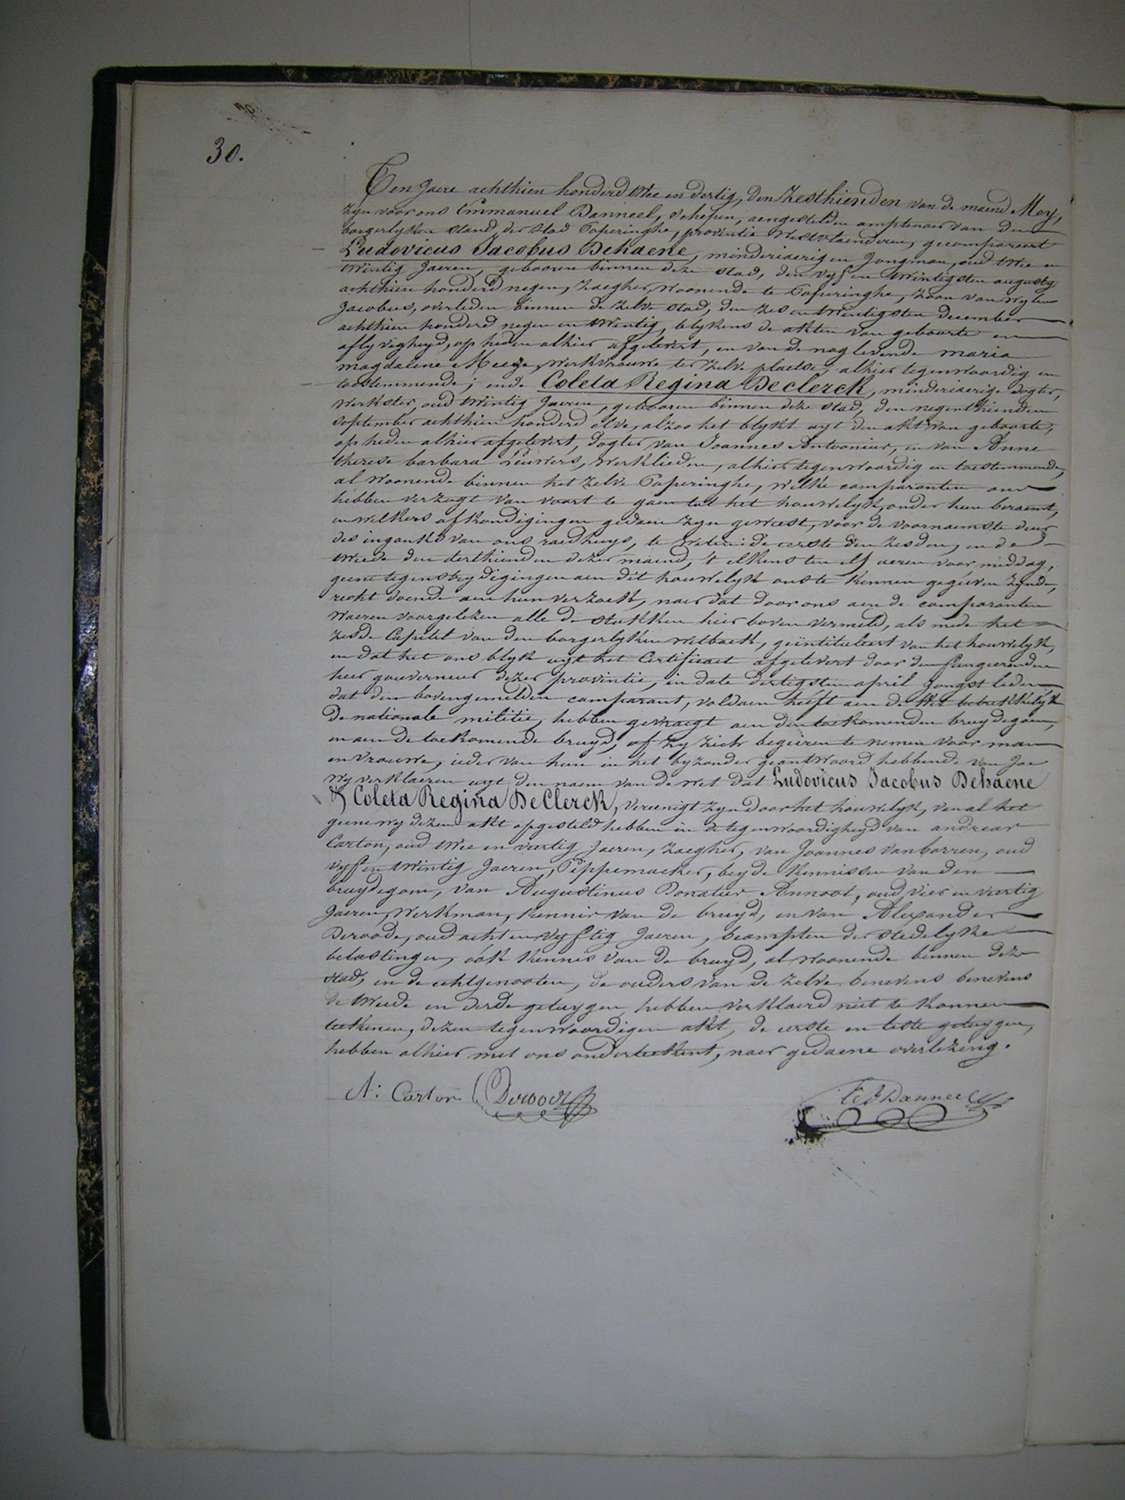 30.
Ten Jaere achthien honderd twee en dertig, den Zesthienden van de maend Mey,
zyn voor ons Emmanuel Banneel, schepen, aengestelden amptenaer van den
borgerlyken stand, der stad Poperinghe, provintie Westvlaenderen, gecompareert
Ludovicus Jacobus Behaene, minderiaerigen Jongman, oud twee en
twintig Jaeren, gebooren binnen deze stad, den vyf en twintigsten augusty
achthien honderd negen, zaegher, woonende te Poperinghe, zoon van wylen
Jacobus, overleden binnen de zelve stad, den zes en twintigsten december
achthien honderd negen en twintig, blykens de akten van geboorte en
aflyvigheyd, op heden alhier afgelevert, en van de nog levende maria
magdalene Meege, werkvrouwe ter zelve plaetse, alhier tegenwoordig en
toestemmende; ende Coleta Regina Declerck, minderiaerige dogter,
werkster, oud twintig Jaeren, gebooren binnen deze stad, den negenthienden
september achthien honderd elve, alzoo het blykt uyt den akt van geboorte,
op heden alhier afgelevert, dogter van Joannes Antonius, en van Anne
therese barbara Leuwers, werklieden, alhier tegenwoordig en toestemmende,
al woonende binnen het zelve Poperinghe, welke comparanten ons
hebben verzogt van voort te gaen tot het houwelyk, onder hun beraemt,
en welkers afkondigingen gedaen zyn geweest, voor de voornaemste deur
des inganks van ons raedhuys, te weten: de eerste den zesden, en de
tweede den derthienden dezer maend, 't elkens ten elf ueren voor middag,
geene tegenstrydigingen aen dit houwelyk ons te kennen gegeven zynde,
recht doende aen hun verzoek, naer dat door ons aen de comparanten
waeren voorgelezen alle de stukken hier boven vermeld, als mede het
zesde Capittel van den borgerlyken wetboek, geintituleert van het houwelyk,
en dat het ons blyk uyt het Certificaet afgelevert door den fungeerenden
heer gouverneur dezer provintie, in date dertigsten april Jongst leden
dat den bovengemelden comparant, voldaen heeft aen de wet betrekkelyk
De nationale militie, hebben gevraegt aen den toekomenden bruydegom,
en aen de toekomende bruyd, of zy zich begeeren te nemen voor man
en vrouwe, ieder van hun in het byzonder geantwoord hebbende van Jae
wy verklaeren uyt den naem van de wet dat Ludovicus Jacobus Behaene
& Coleta Regina De Clerck, vereenigt zyn door het houwelyk, van al het
geene wy dezen akt opgesteld hebben in de tegenwoordigheyd van andreas
Carton, oud twee en veertig Jaeren, Zaegher, van Joannes Vanborren, oud
vyf en twintig Jaeren, Pippemaeker, beyde kennissen van den
bruydegom, van Augustinus Donatus Annoot, oud vier en veertig
Jaeren, werkman, kennis van de bruyd, en van Alexander
Deroode, oud acht en vyftig Jaeren, beampten der stedelyke
belastingen, ook kennis van de bruyd, al woonende binnen deze
stad, en de echtgenooten, de ouders van de zelve benevens benevens
de tweede en derde getuygen hebben verklaerd niet te konnen
teekenen, dezen tegenwoordigen akt, de eerste en leste getuygen,
hebben alhier met ons onderteekent, naer gedaene overlezing.
A: Carton Deroode Banneel